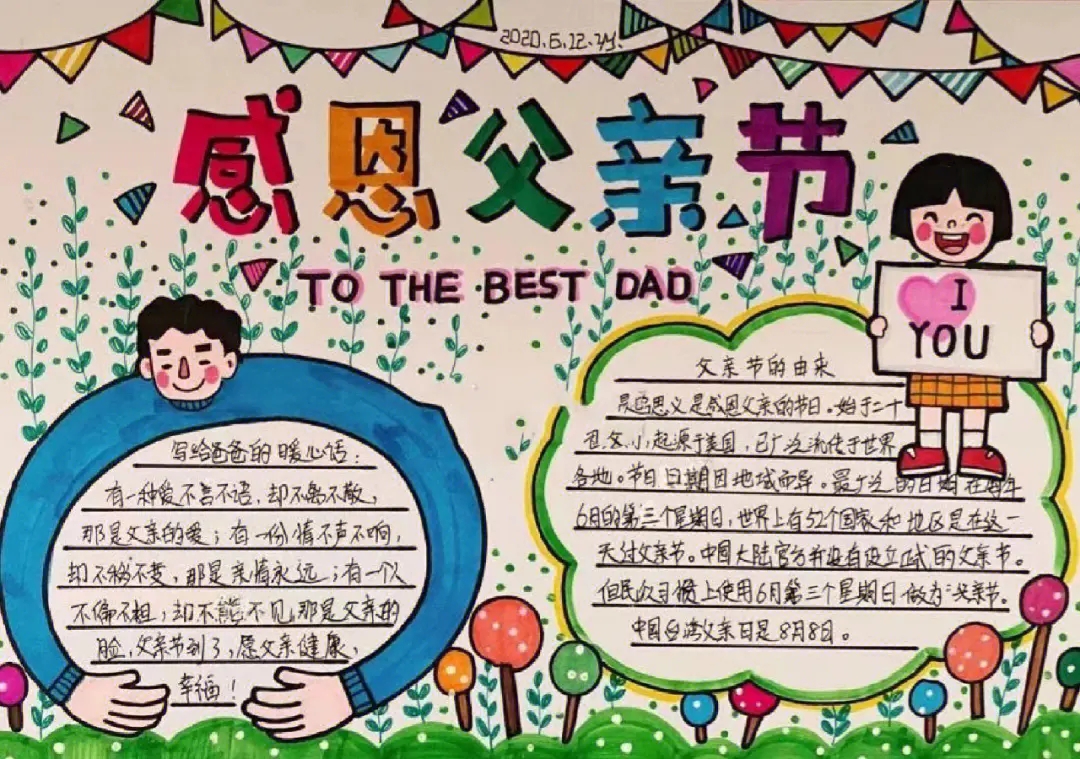 2020.6.12.
感恩父亲节
TO THE BEST DAD
I
YOU
写给爸爸的暖心话:
有一种爱不言不语,却不
那是父亲的爱;有一份情不声不响,
却不变,那是亲情永远;有一个人
不偏不袒,却不能不见,那是父亲的
脸,父亲节到了,愿父亲健康,
幸福!
父亲节的由来
思义是感恩父亲的节日。始于二十
起源于美国,已广泛流传于世界
各地。节日日期因地域而异。最广泛的日期在每年
6月的第三个星期日,世界上有52个国家和地区是在这一
天过父亲节。中国大陆官方并没有设立正式的父亲节。
但民众习惯上使用6月第三个星期日做为父亲节。
中国台湾父亲日是8月8日。